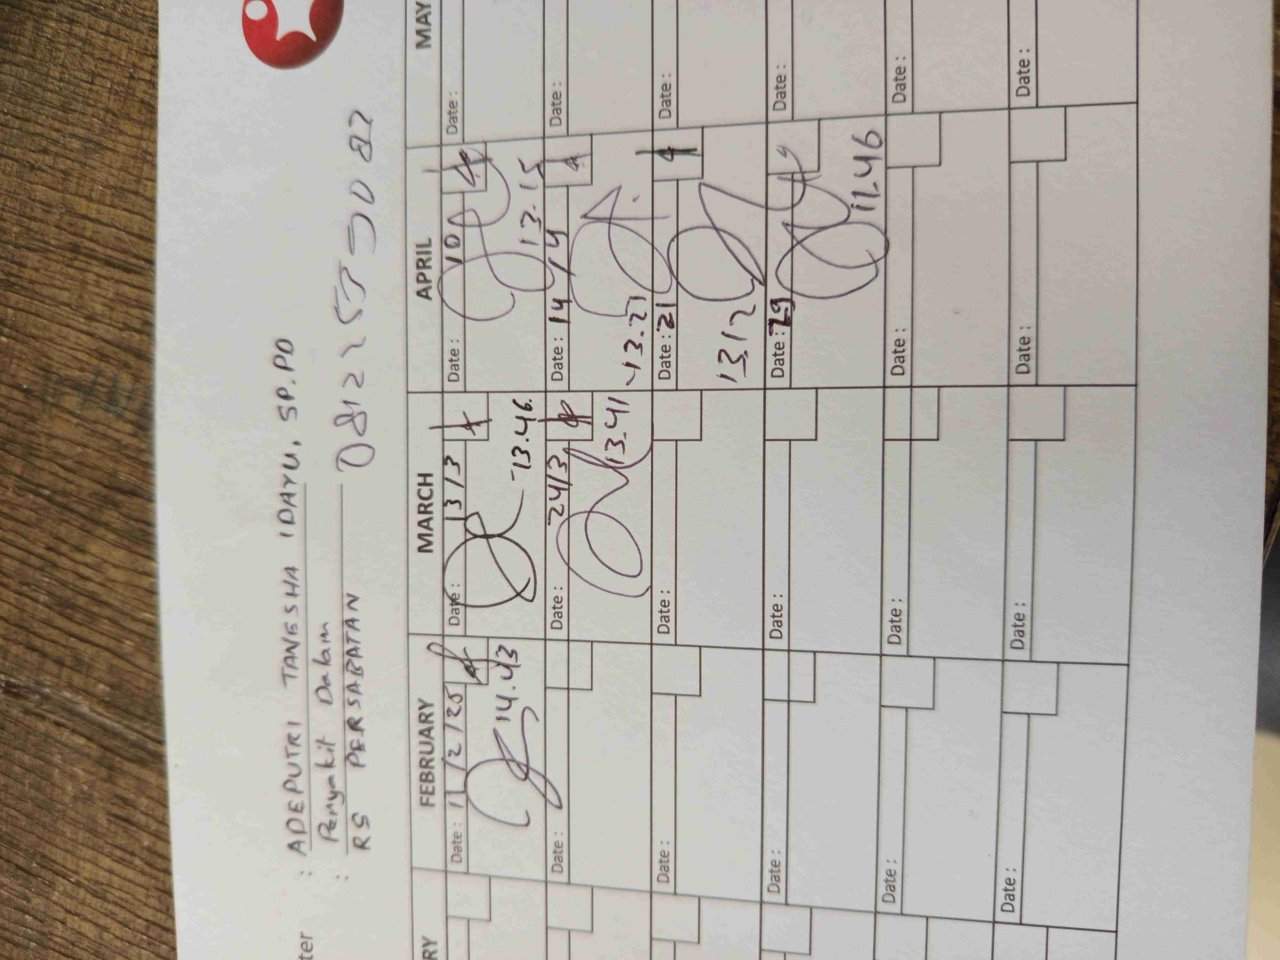 ter : ADEPUTRI TANESSHA IDAYU, SP.PD
Penyakit Dalam
: RS PERSAHATAN 081225553082
RY FEBRUARY MARCH APRIL MAY
Date : 11/2/25 Date : 13/3 Date : 10 Date :
14.43 13.46 13.15
Date : Date : 24/3 Date : 14/4 Date :
13.41 13.21
Date : Date : Date : 21 Date :
13.12
Date : Date : Date : 29 Date :
12.46
Date : Date : Date : Date :
Date : Date : Date : Date :